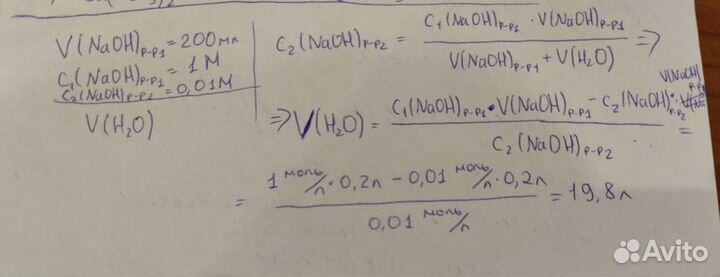 V(NaOH)р-р1 = 200 мл
C₁(NaOH)р-р1 = 1 М
C₂(NaOH)р-р2 = 0,01 М
V(H₂O)
C₂(NaOH)р-р2 = C₁(NaOH)р-р1 · V(NaOH)р-р1 / V(NaOH)р-р1 + V(H₂O) =>
=> V(H₂O) = C₁(NaOH)р-р1 · V(NaOH)р-р1 - C₂(NaOH)р-р2 · V(NaOH)р-р1 / C₂(NaOH)р-р2 =
= 1 моль/л · 0,2л - 0,01 моль/л · 0,2л / 0,01 моль/л = 19,8л
Avito